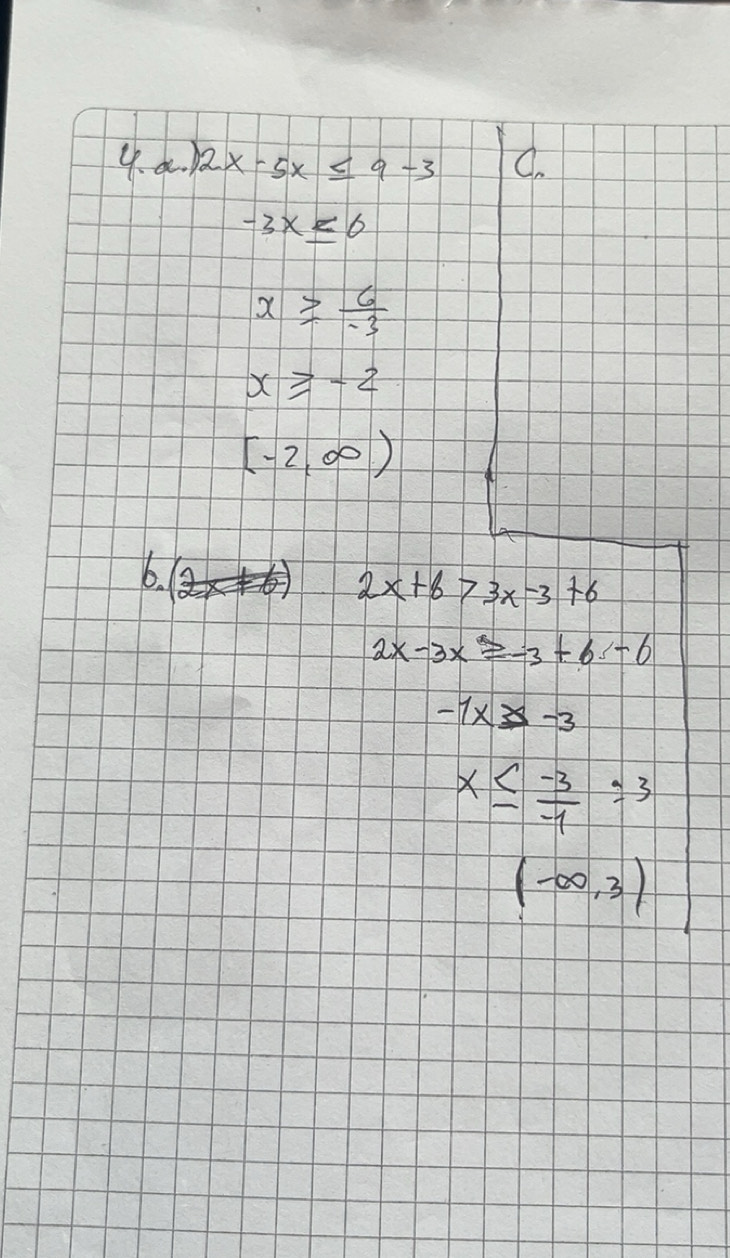 4. a.) 2x - 5x ≤ 9 - 3
-3x ≤ 6
x ≥ 6/-3
x ≥ -2
[-2, ∞)
C.
b. (2x + 6) 2x + 6 > 3x - 3 + 6
2x - 3x ≥ -3 + 6 - 6
-1x -3
x ≤ -3/-1 = 3
(-∞, 3)